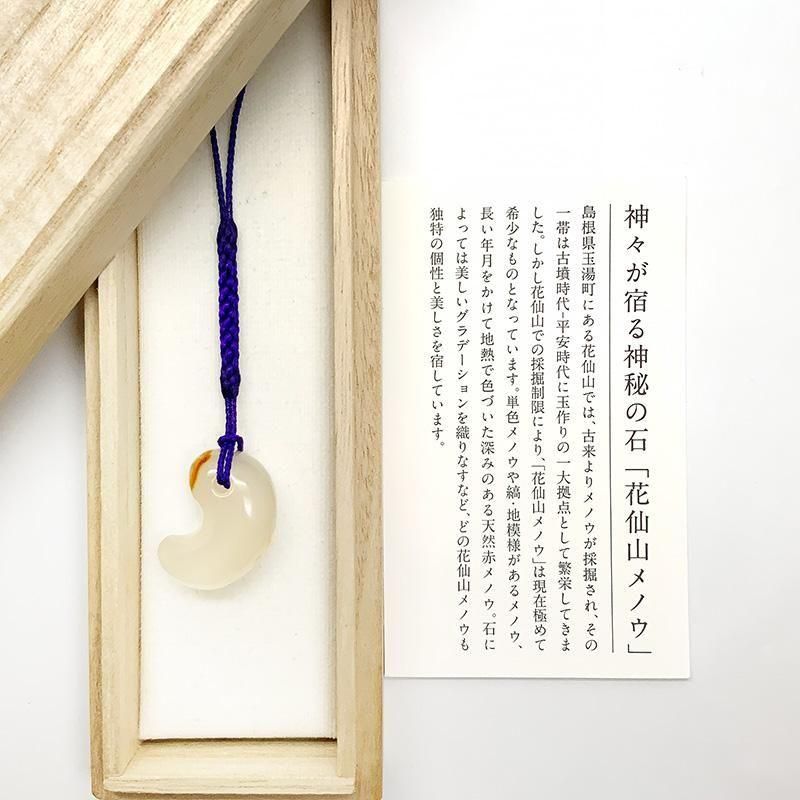 神々が宿る神秘の石「花仙山メノウ」
島根県玉湯町にある花仙山では、古来よりメノウが採掘され、その
一帯は古墳時代-平安時代に玉作りの一大拠点として繁栄してきま
した。しかし花仙山での採掘制限により、「花仙山メノウ」は現在極めて
希少なものとなっています。単色メノウや縞・地模様があるメノウ、
長い年月をかけて地熱で色づいた深みのある天然赤メノウ。石に
よっては美しいグラデーションを織りなすなど、どの花仙山メノウも
独特の個性と美しさを宿しています。